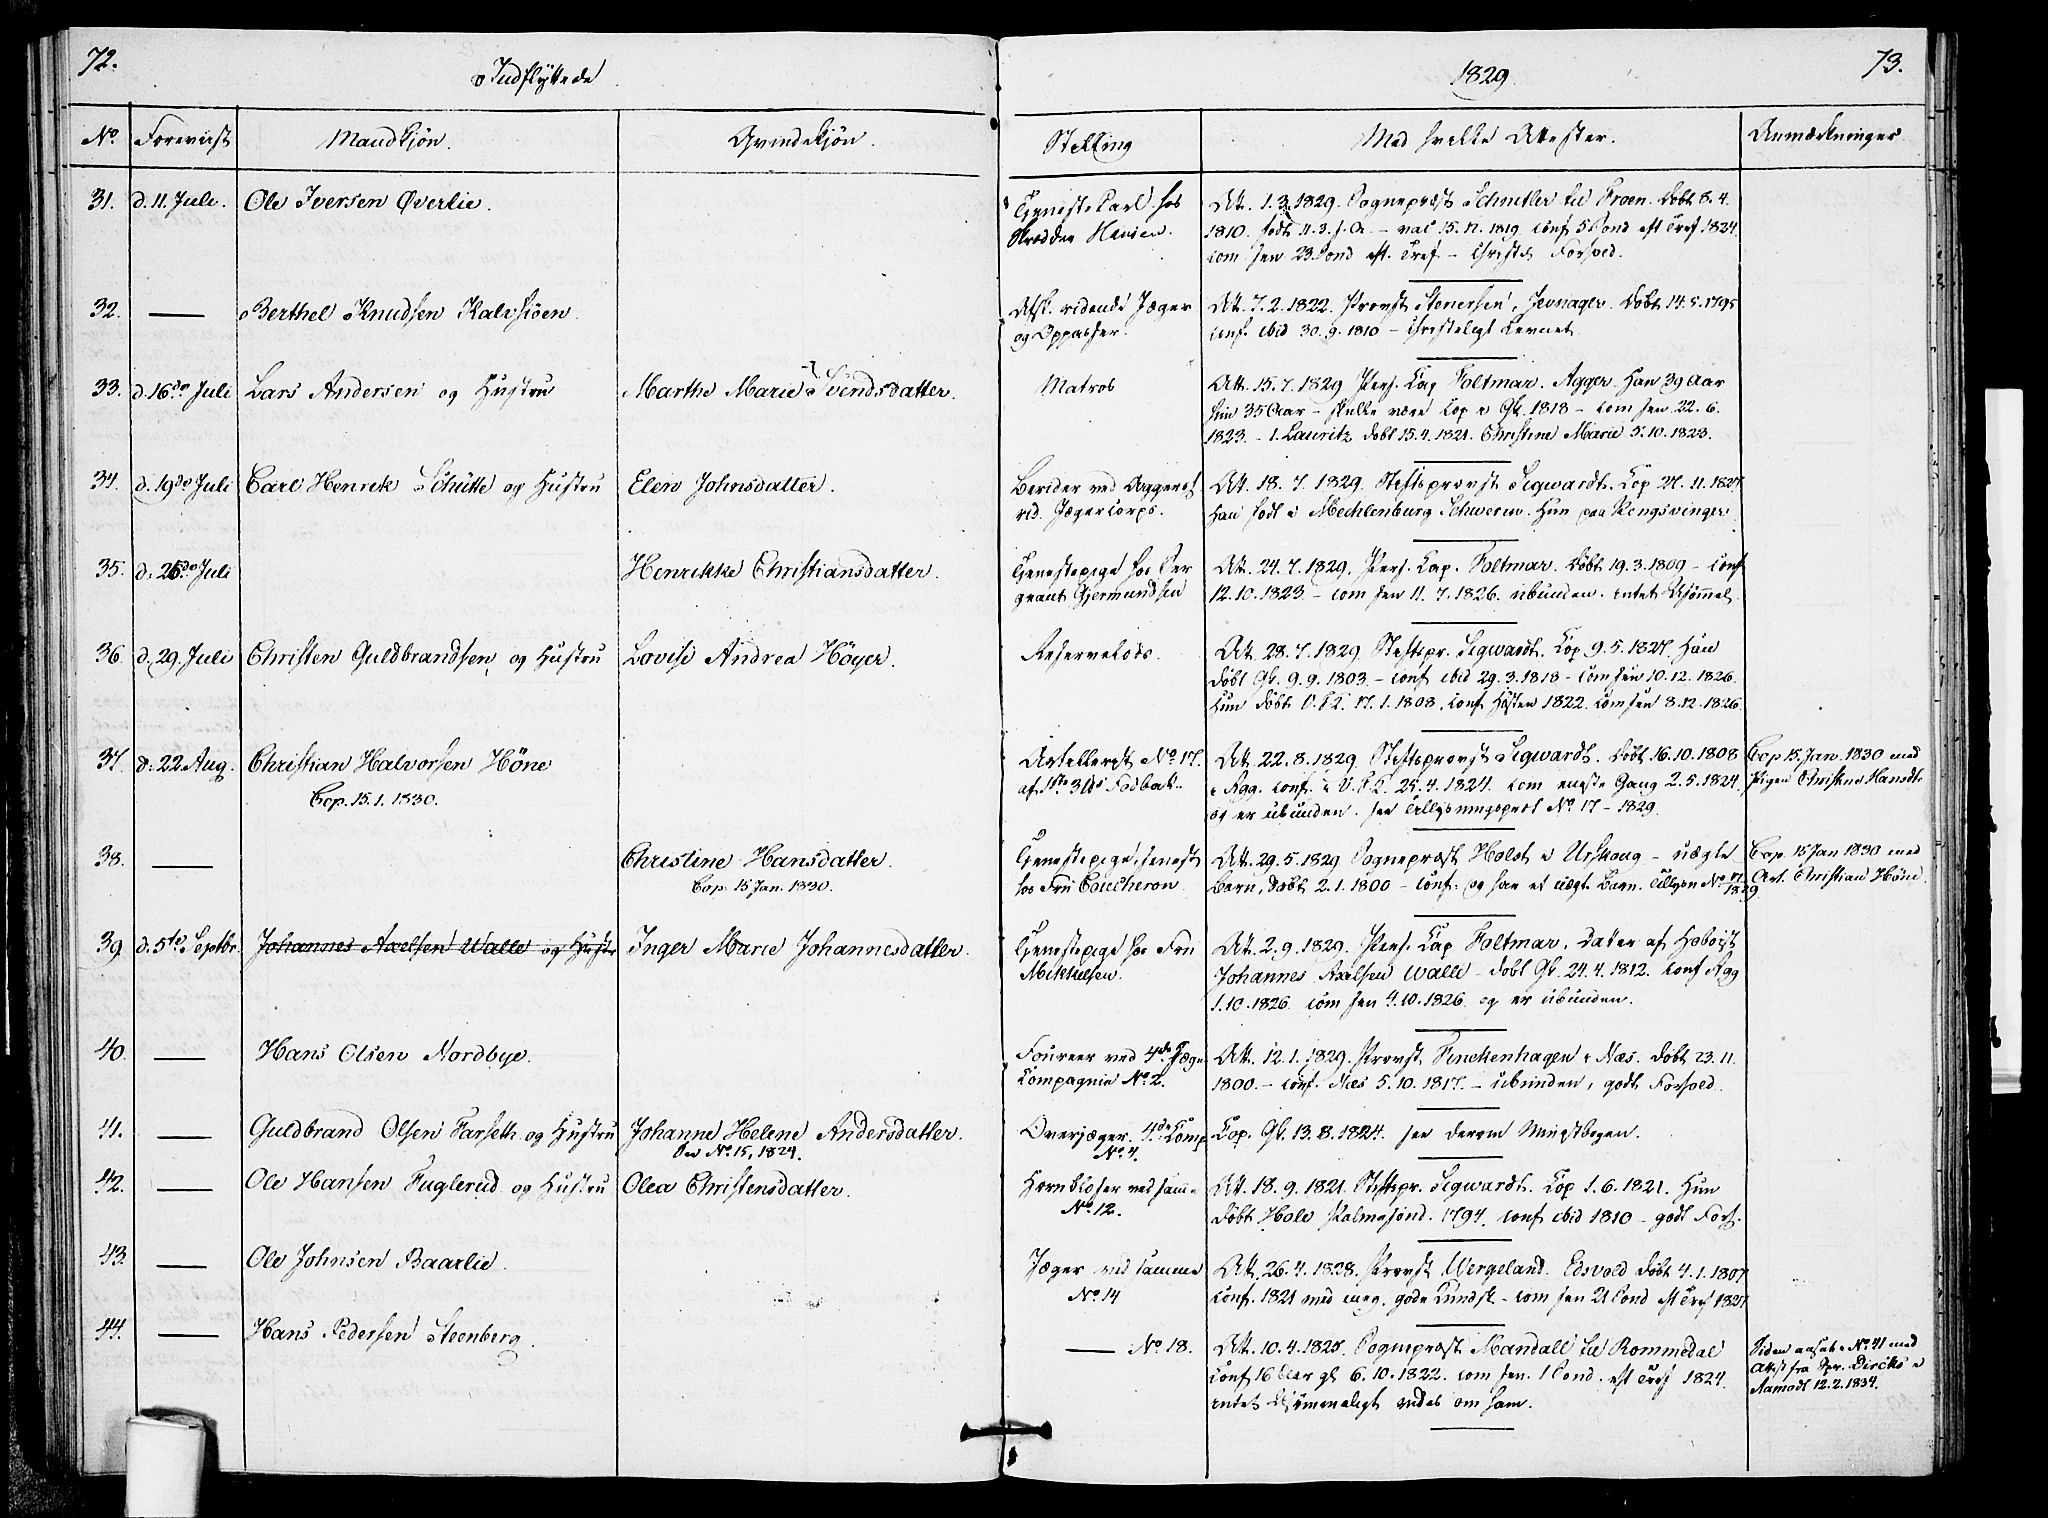 72.
Indflyttede
1829.
73.
No
Foreviist
Mandkjøn.
Qvindekjøn.
Stilling
Med hvilke Attester.
Anmærkninger
31. d. 11. Juli. Ole Iversen Øverlie.
Tjenestekarl hos
Skrædder Hansen.
Att. 1.3.1829. Sognepræst Schnitler til Froen. Døbt 8.4.
1810. født 11.3. s. A. – vac 15.17.1819. conf 5 Sønd eft Tref 1824.
com sen 23 Sønd eft. Tref – christel Forhold.
32. Berthel Knudsen Kalvsiøen.
Afsk. ridende Jæger
og Oppasser.
Att. 7.2.1822. Provst Stenersen, Jevnager. Døbt 14.5.1795
conf. ibid 30.9.1810 – christeligt Levnet.
33. d. 16de Juli Lars Andersen og Hustru Marthe Marie Svendsdatter.
Matros
Att. 15.7.1829 Pers. Cap Foltmar. Agger. Han 39 Aar
hun 35 Aar – skulle være Cop i Gb. 1818 – com sen 22.6.
1823. – 1. Lauritz døbt 15.4.1821. Christine Marie 5.10.1823.
34. d. 19de Juli Carl Henrik Schütte og Hustru Elen Johnsdatter.
Berider ved Aggers
rid. Jægercorps.
Att. 18.7.1829. Stiftsprovst Sigwardt. Cop 27.11.1827.
Han født i Mechlenburg Schwerin. Hun paa Kongsvinger
35. d. 26de Juli Henrikke Christiansdatter.
Tjenestepige hos Ser
geant Gjermundsen
Att. 24.7.1829. Pers. Cap. Foltmar. Døbt 19.3.1809 – conf
12.10.1823 – com sen 11.7.1826. ubunden. intet Usømmel.
36. d. 29. Juli Christen Guldbrandsen og Hustru Lovise Andrea Høyer.
Reservelods.
Att. 28.7.1829. Stiftspr. Sigwardt. Cop 9.5.1827. Han
døbt Gb. 9.9.1803. – conf ibid 29.3.1818 – com sen 10.12.1826.
Hun døbt V.F.K. 17.1.1808. conf. Høsten 1822. com sen 8.12.1826.
37. d. 22 Aug. Christian Halvorsen Höne
Cop. 15.1.1830.
Artillerist No 17.
af 1ste 3lds Fodbat.
Att. 22.8.1829. Stiftsprovst Sigwardt. Døbt 16.10.1808
i Agg. conf. i V.F.K. 25.4.1824. com eneste Gang 2.5.1824.
og er ubunden. see Tillysningsprot No 17 – 1829.
Cop 15. Jan. 1830 med
Pigen Christine Hansdt.
38. Christine Hansdatter.
Cop. 15 Jan. 1830.
Tjenestepige, senest
hos Fru Coucheron.
Att. 29.5.1829 Sognepræst Holst i Urskoug – uægte
Barn, døbt 2.1.1800 – conf. og har et uægt. Barn. Tillysn No 17 1829
Cop. 15 Jan 1830 med
Art. Christian Höne.
39. d. 5te Septbr. Johannes Axelsen Walle og Hustr Inger Marie Johannesdatter.
Tjenestepige hos Fru
Mikkelsen.
Att. 2.9.1829. Pers. Cap Foltmar, Datter af Hoboist
Johannes Axelsen Walle – døbt Gb. 24.4.1812. conf Agg
1.10.1826. com sen 4.10.1826. og er ubunden.
40. Hans Olsen Nordbye.
Foureer ved 4de Jæger
Compagnie No 2.
Att. 12.1.1829. Provst Finckenhagen i Næs. døbt 23.11.
1800. – conf. Næs 5.10.1817. – ubunden, godt Forhold.
41. Guldbrand Olsen Farseth og Hustru Johanne Helene Andersdatter.
see No 15, 1824.
Overjæger. 4de Comp
No 4.
Cop. Gb. 13.8.1824. see derom Ministbogen.
42. Ole Hansen Fuglerud og Hustru Olea Christensdatter.
Hornblæser ved samme
No 12.
Att. 18.9.1821. Stiftspr. Sigwardt. Cop 1.6.1821. Hun
døbt Hole Palmesønd. 1794. conf ibid 1810 – godt Forh.
43. Ole Johnsen Baarlie.
Jæger ved samme
No 14
Att. 26.4.1828. Provst Wergeland. Edsvold døbt 4.1.1807
conf. 1821 med meg. gode Kundsk – com sen 21 Sønd eft Tref 1827
44. Hans Pedersen Steenberg.
No 18.
Att. 10.4.1825. Sognepræst Mandall til Rommedal
conf 16 Aar gl 6.10.1822. com sen. 1 Sønd. eft Tref 1824.
intet Usømmeligt vides om ham.
Siden ansat No 41 med
Attest fra Spr. Dircks i
Aamodt 12.2.1834.